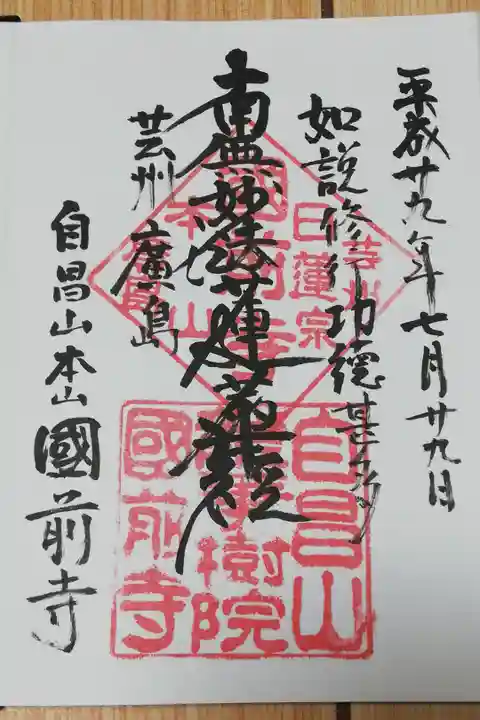 平成廿九年七月廿九日
如説修行功徳甚多
南無妙法蓮華経
芸州廣島
自昌山本山國前寺
芸州
日蓮宗
國前寺
本山
廣島
自昌山
樹院
國前寺